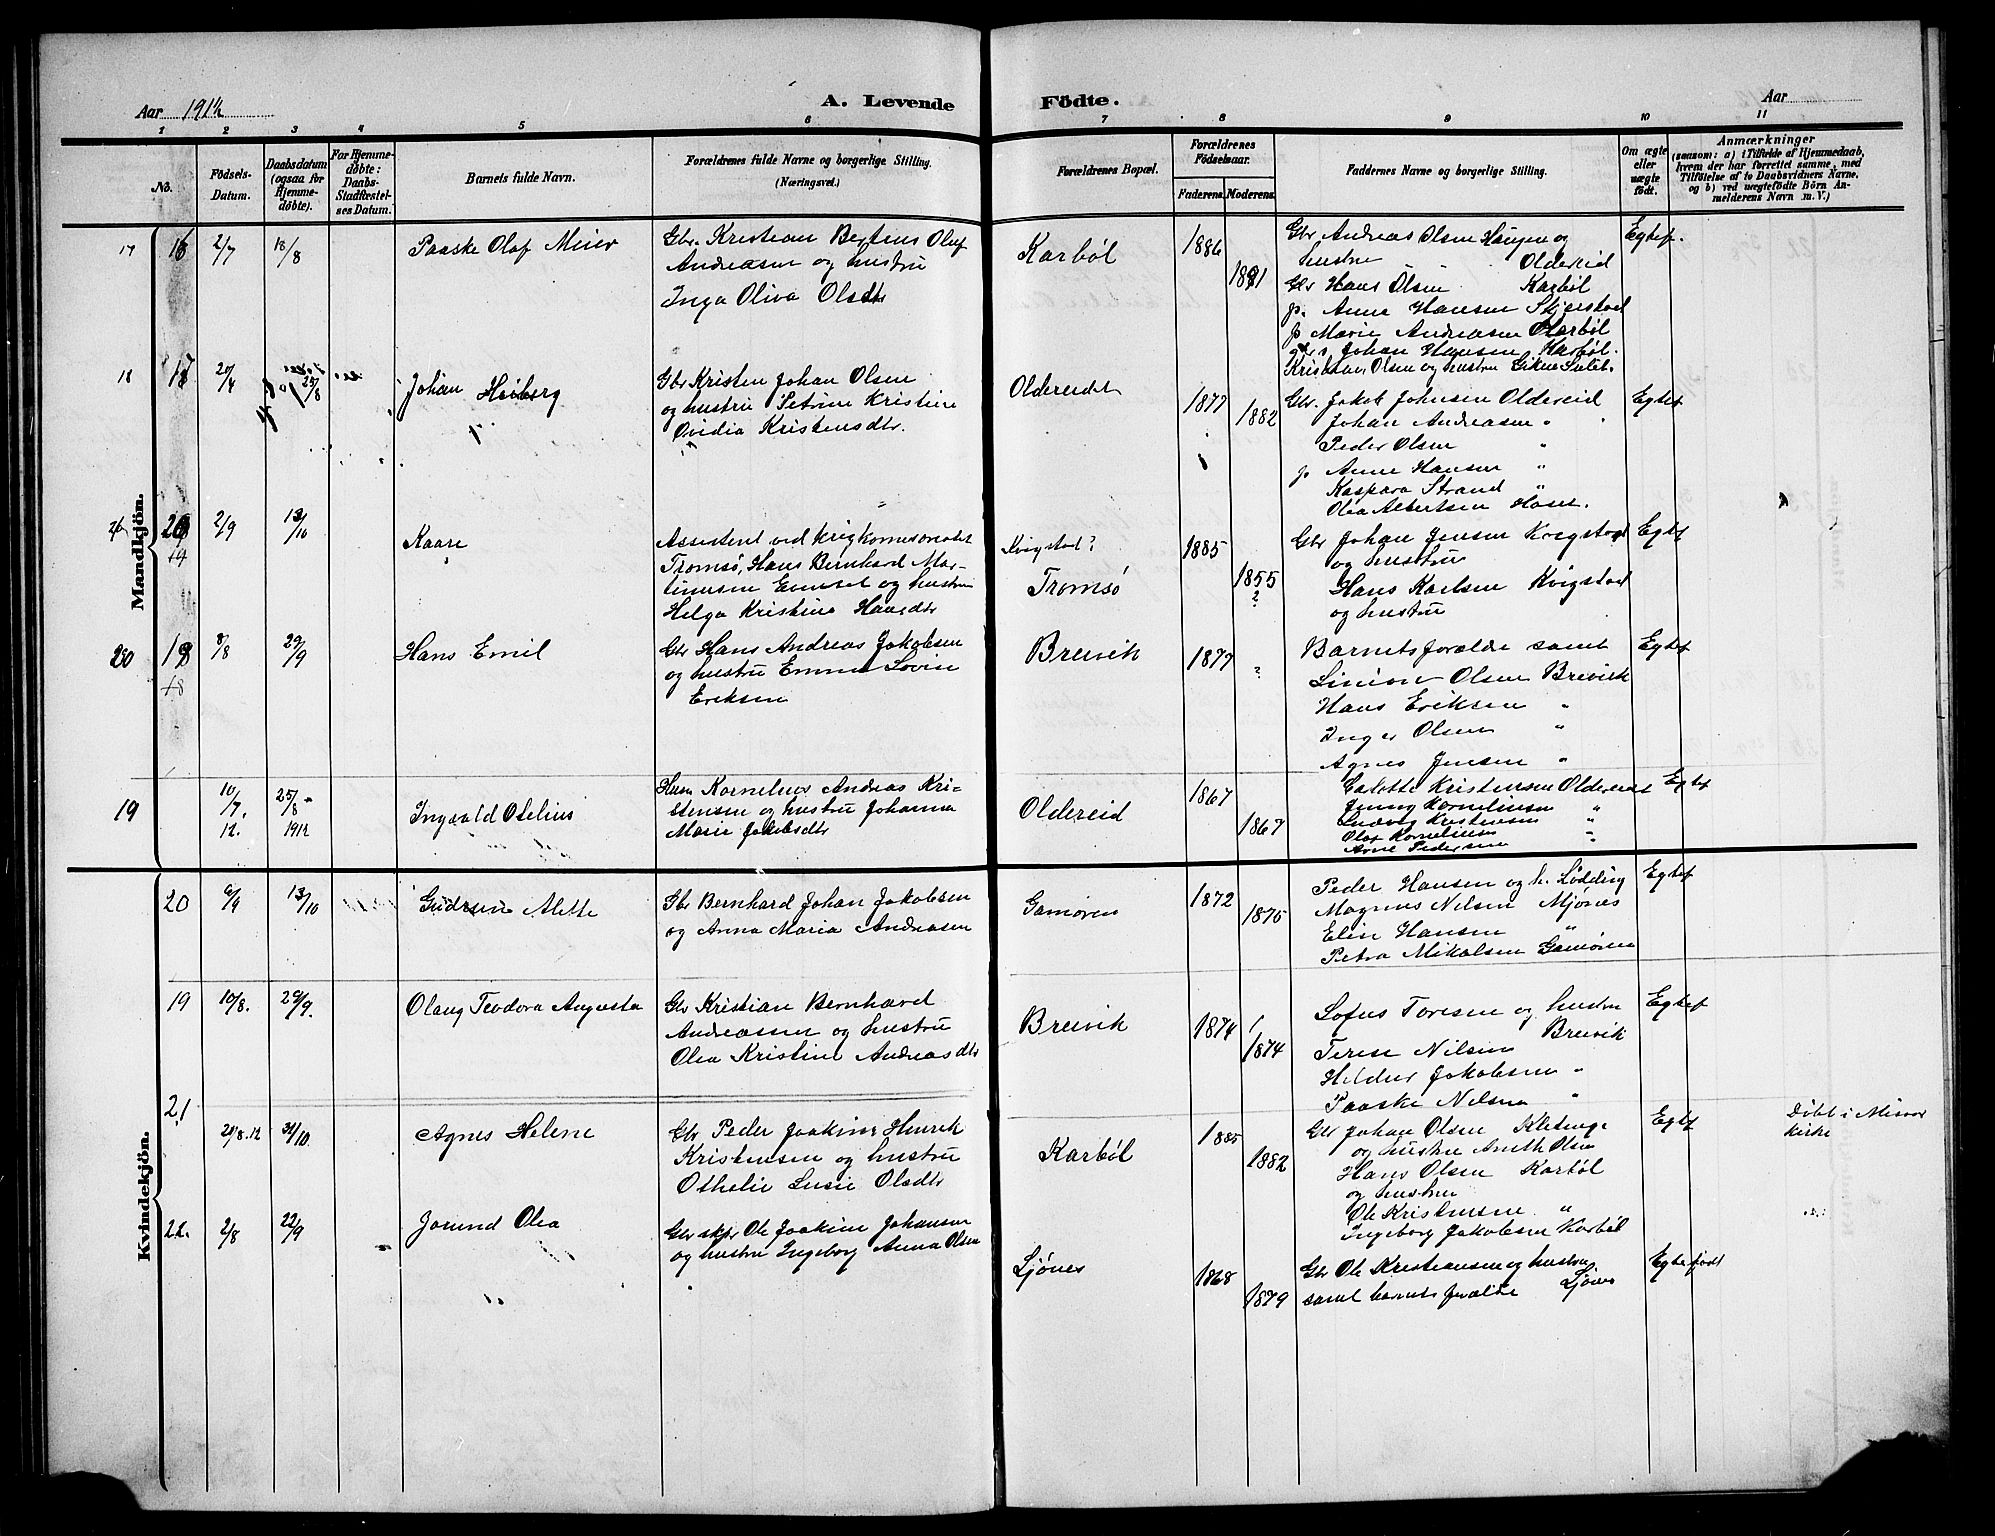 Aar 1912
A. Levende
Födte.
Aar
1 2 3 4 5 6 7 8 9 10 11
No.
Födsels-
Datum.
Daabsdatum
(ogsaa for
Hjemme-
döbte).
For Hjemme-
döbte:
Daabs-
Stadfæstel-
ses Datum.
Barnets fulde Navn.
Forældrenes fulde Navne og borgerlige Stilling.
(Næringsvei.)
Forældrenes Bopæl.
Forældrenes
Födselsaar.
Faderens.
Moderens.
Faddernes Navne og borgerlige Stilling.
Om ægte
eller
uægte
födt.
Anmærkninger
(saasom: a) i Tilfælde af Hjemmedaab,
hvem der har forrettet samme, med
Tilföielse af to Daabsvidners Navne,
og b) ved uægtefödte Börn An-
melderens Navn m. V.)
Mandkjön.
17 16 2/7 18/8
Paaske Olaf Meier
Gbr. Kristian Berteus Oluf
Andreasen og hustru
Inga Oliva Olsdtr
Karbøl
1886
1891
Gbr Andreas Olsen Haugen og
hustru Oldereid
Gbr Hans Olsen Karbøl
p. Anna Hansen Skjerstad
p Marie Andreasen Karbøl
Johan Hansen Karbøl.
Kristian Olsen og hustru
Egtef.
18 20/4 25/8
Johan Heiberg
Gbr Kristen Johan Olsen
og hustru Petrine Kristine
Ovidia Kristensdtr.
Oldereidet
1877
1882
Gbr. Jakob Johnsen Oldereid
Johan Andreasen "
Peder Olsen "
p Anne Hansen "
Kaspara Strand "
Olea Albertsen
Egtef
2/9 13/10
Kaare
Assistent ved
Tromsø, Hans Bernhard Mar-
tinusen Evenset og hustru
Helga Kristine Hansdtr
Kvigstad?
Tromsø
1885
1855
?
Gbr Johan Jensen Kvigstad
og hustru
Hans Karlsen Kvigstad
og hustru
Egtef
20 8/8 29/9
Hans Emil
Gbr Hans Andreas Jakobsen
og hustru Emma Lovise
Eriksen
Breivik
1877
?
Barnets forældre samt
Simon Olsen Breivik
Hans Eriksen "
Inger Olsen "
Agnes Jensen "
Egtef
19 10/7. 25/8
12. 1912
Ingvald Otelius
Husm Kornelius Andreas Kri-
stensen og hustru Johanna
Marie Jakobsdtr
Oldereid
1867
1867
Lalotte Kristensen Oldereidet
Jenny Korneliusen "
Ludvig Kristensen "
Olaf Korneliusen "
Arne Pedersen
Egtef
Kvindekjön.
20 9/9 13/10
Gudrun Alette
Gbr Bernhard Johan Jakobsen
og Anna Maria Andreasen
Gamøren
1872
1875
Peder Hansen og h. Lødding
Magnus Nilsen Mjønes
Elin Hansen "
Petra Mikalsen Gamøren
Egtef
19 10/8. 29/9.
Olaug Teodora Augusta
Gbr Kristian Bernhard
Andreassen og hustru
Olea Kristine Andreasdtr
Breivik
1874
1874
Sofus Toresen og hustru
Breivik
Terese Nilsen
Hildur Jakobsen "
Paaske Nilsen "
Egtef
21 21/8.12 31/10
Agnes Helene
Gbr Peder Joakim Henrik
Kristensen og hustru
Othelie Lusie Olsdtr
Karbøl
1885
1882
Gbr Johan Olsen Kletunge
og hustru Anette Olsen
Hans Olsen Karbøl
og hustru
Ole Kristensen "
Ingeborg Jakobsen Karbøl
Egtef
Døbt i Misvær
kirke
22. 2/8 22/9
Jorund Olea
Gbr skpr Ole Joakim Johansen
og hustru Ingeborg Anna Olsen
Ljønes
1868
1879
Gbr Ole Kristiansen og hustru
samt barnets forældre Ljønes
Egtefødt